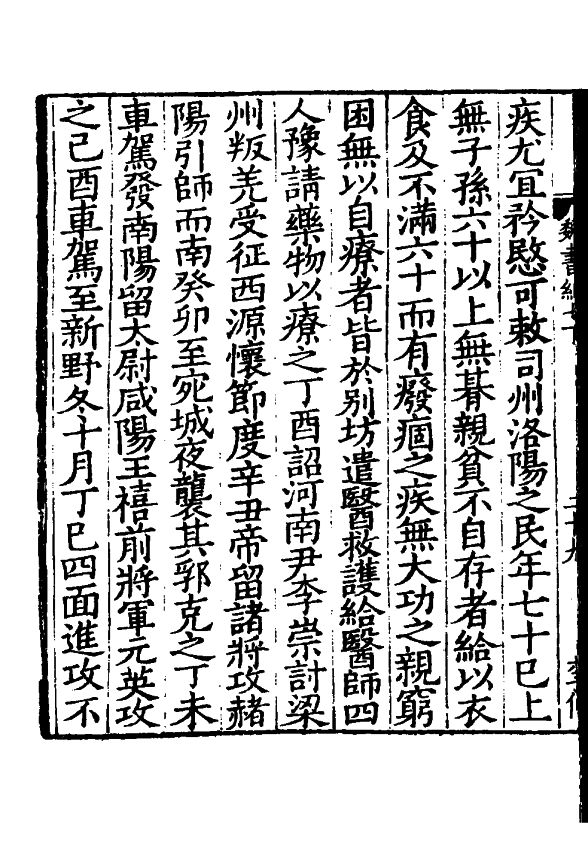 疾尤宜矜愍可敕司州洛陽之民年七十已上
無子孫六十以上無朞親貧不自存者給以衣
食及不滿六十而有癈痼之疾無大功之親窮
困無以自療者皆於别坊遣醫救護給醫師四
人豫請藥物以療之丁酉詔河南尹李崇討梁
州叛羌受征西源懷節度辛丑帝留諸將攻赭
陽引師而南癸卯至宛城夜襲其郛克之丁未
車駕發南陽留太尉咸陽王禧前將軍元英攻
之己酉車駕至新野冬十月丁巳四面進攻不